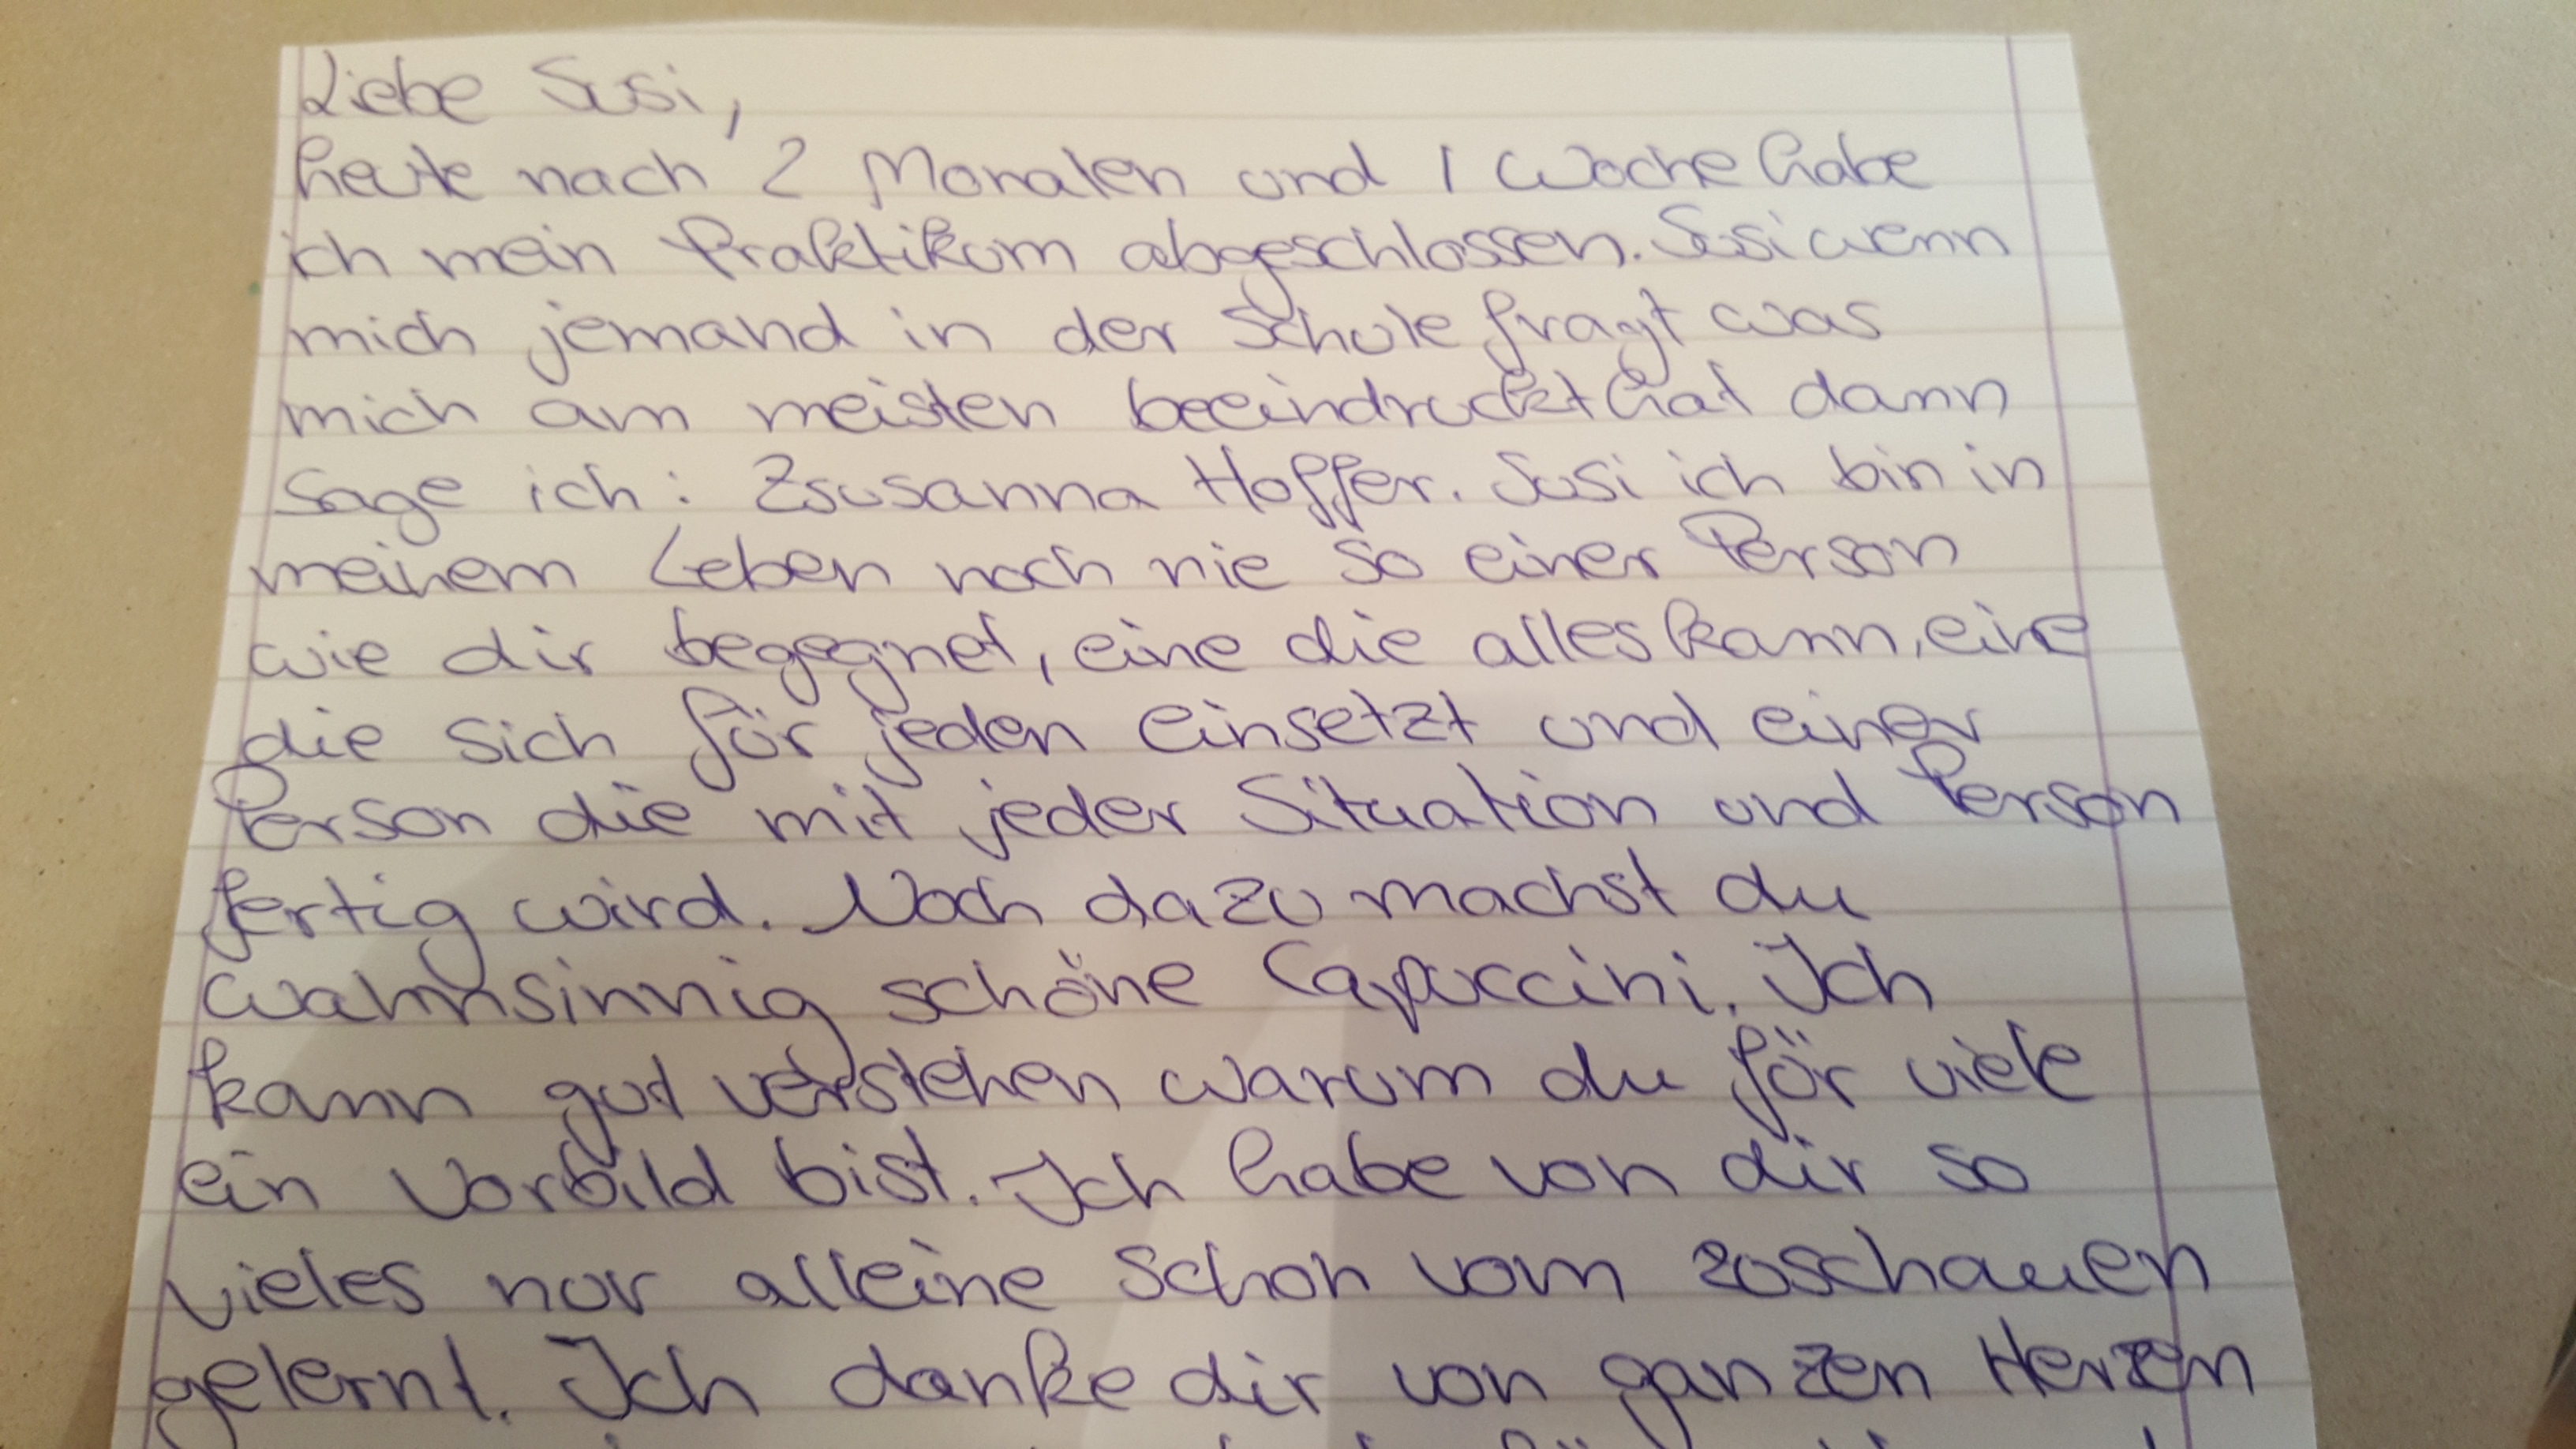 Liebe Susi,
heute nach 2 Monaten und 1 Woche habe
ich mein Praktikum abgeschlossen. Susi wenn
mich jemand in der Schule fragt was
mich am meisten beeindruckt hat dann
sage ich: Zsusanna Hoffer. Susi ich bin in
meinem Leben noch nie so einer Person
wie dir begegnet, eine die alles kann, eine
die sich für jeden einsetzt und einer
Person die mit jeder Situation und Person
fertig wird. Noch dazu machst du
wahnsinnig schöne Capuccini. Ich
kann gut verstehen warum du für viele
ein Vorbild bist. Ich habe von dir so
vieles nur alleine schon vom zuschauen
gelernt. Ich danke dir von ganzen Herzen